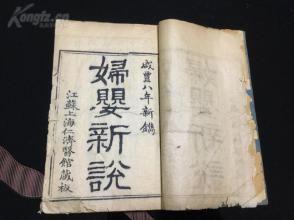 咸豐八年新鐫
婦嬰新說
江蘇上海仁濟醫館藏板
Kongfz.cn